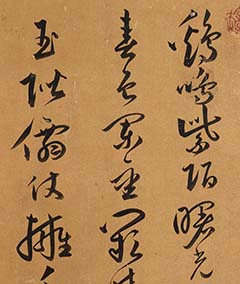 鷄鳴紫陌曙光
春色闌金闕
玉階僊仗擁